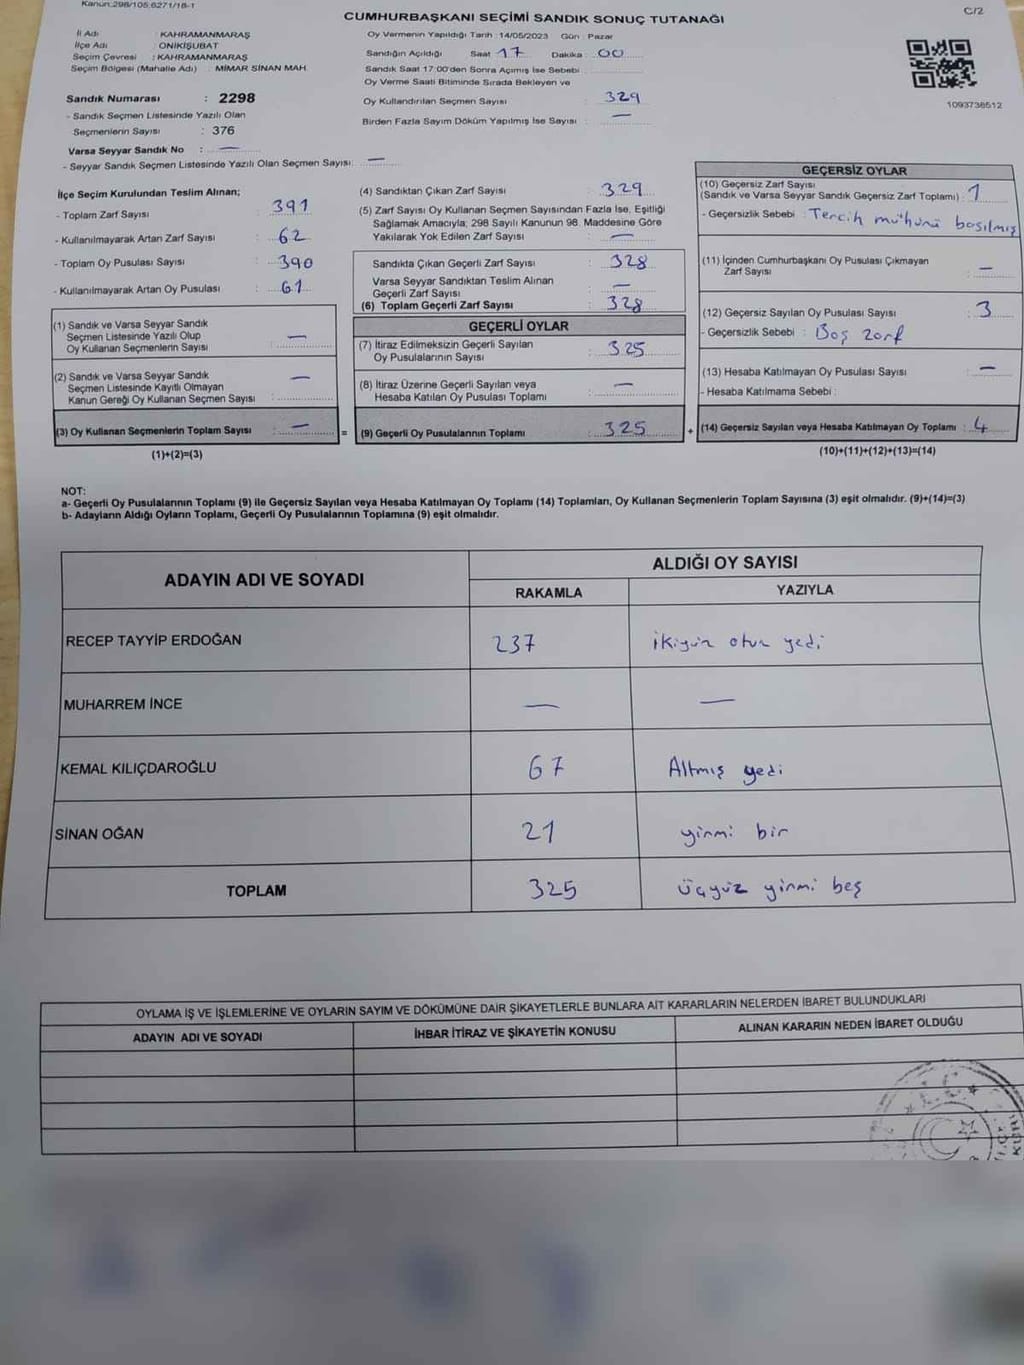 Kanun:298/105;6271/18-1
C/2
CUMHURBAŞKANI SEÇİMİ SANDIK SONUÇ TUTANAĞI
İl Adı : KAHRAMANMARAŞ
İlçe Adı : ONİKİŞUBAT
Seçim Çevresi : KAHRAMANMARAŞ
Seçim Bölgesi (Mahalle Adı) : MİMAR SİNAN MAH.
Sandık Numarası : 2298
- Sandık Seçmen Listesinde Yazılı Olan
Seçmenlerin Sayısı : 376
Varsa Seyyar Sandık No : —
- Seyyar Sandık Seçmen Listesinde Yazılı Olan Seçmen Sayısı: —
Oy Vermenin Yapıldığı Tarih :14/05/2023 Gün : Pazar
Sandığın Açıldığı Saat 17 Dakika : 00
Sandık Saat 17:00'den Sonra Açımış İse Sebebi :
Oy Verme Saati Bitiminde Sırada Bekleyen ve
Oy Kullandırılan Seçmen Sayısı : 329
Birden Fazla Sayım Döküm Yapılmış İse Sayısı : —
1093736512
İlçe Seçim Kurulundan Teslim Alınan;
- Toplam Zarf Sayısı : 391
- Kullanılmayarak Artan Zarf Sayısı : 62
- Toplam Oy Pusulası Sayısı : 390
- Kullanılmayarak Artan Oy Pusulası : 61
(1) Sandık ve Varsa Seyyar Sandık
Seçmen Listesinde Yazılı Olup
Oy Kullanan Seçmenlerin Sayısı : —
(2) Sandık ve Varsa Seyyar Sandık
Seçmen Listesinde Kayıtlı Olmayan
Kanun Gereği Oy Kullanan Seçmen Sayısı : —
(3) Oy Kullanan Seçmenlerin Toplam Sayısı : —
(1)+(2)=(3)
(4) Sandıktan Çıkan Zarf Sayısı : 329
(5) Zarf Sayısı Oy Kullanan Seçmen Sayısından Fazla İse, Eşitliği
Sağlamak Amacıyla; 298 Sayılı Kanunun 98. Maddesine Göre
Yakılarak Yok Edilen Zarf Sayısı : —
Sandıkta Çıkan Geçerli Zarf Sayısı : 328
Varsa Seyyar Sandıktan Teslim Alınan
Geçerli Zarf Sayısı : —
(6) Toplam Geçerli Zarf Sayısı : 328
GEÇERLİ OYLAR
(7) İtiraz Edilmeksizin Geçerli Sayılan
Oy Pusulalarının Sayısı : 325
(8) İtiraz Üzerine Geçerli Sayılan veya
Hesaba Katılan Oy Pusulası Toplamı : —
= (9) Geçerli Oy Pusulalarının Toplamı : 325 +
GEÇERSİZ OYLAR
(10) Geçersiz Zarf Sayısı
(Sandık ve Varsa Seyyar Sandık Geçersiz Zarf Toplamı) : 1
- Geçersizlik Sebebi : Tercih mühürü basılmış
(11) İçinden Cumhurbaşkanı Oy Pusulası Çıkmayan
Zarf Sayısı : —
(12) Geçersiz Sayılan Oy Pusulası Sayısı : 3
- Geçersizlik Sebebi : Boş zarf
(13) Hesaba Katılmayan Oy Pusulası Sayısı : —
- Hesaba Katılmama Sebebi :
(14) Geçersiz Sayılan veya Hesaba Katılmayan Oy Toplamı : 4
(10)+(11)+(12)+(13)=(14)
NOT:
a- Geçerli Oy Pusulalarının Toplamı (9) ile Geçersiz Sayılan veya Hesaba Katılmayan Oy Toplamı (14) Toplamları, Oy Kullanan Seçmenlerin Toplam Sayısına (3) eşit olmalıdır. (9)+(14)=(3)
b- Adayların Aldığı Oyların Toplamı, Geçerli Oy Pusulalarının Toplamına (9) eşit olmalıdır.
ADAYIN ADI VE SOYADI
ALDIĞI OY SAYISI
RAKAMLA YAZIYLA
RECEP TAYYİP ERDOĞAN 237 ikiyüz otuz yedi
MUHARREM İNCE — —
KEMAL KILIÇDAROĞLU 67 Altmış yedi
SİNAN OĞAN 21 yirmi bir
TOPLAM 325 Üçyüz yirmi beş
OYLAMA İŞ VE İŞLEMLERİNE VE OYLARIN SAYIM VE DÖKÜMÜNE DAİR ŞİKAYETLERLE BUNLARA AİT KARARLARIN NELERDEN İBARET BULUNDUKLARI
ADAYIN ADI VE SOYADI İHBAR İTİRAZ VE ŞİKAYETİN KONUSU ALINAN KARARIN NEDEN İBARET OLDUĞU
T.C.